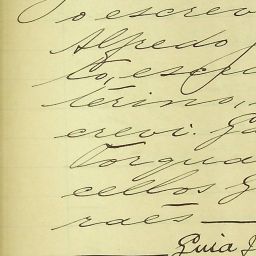 o escrev
Alfredo
to, escr
terino,
crevi. Ga
Torqua
cellos G
raes
Guia J